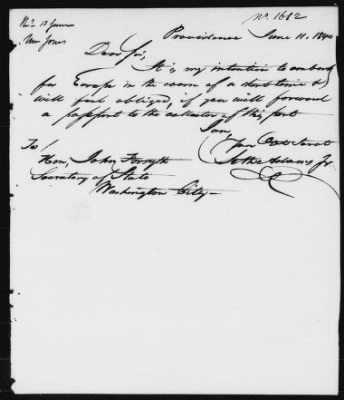 No. 1682
Rec 13 June
Mr Jones
Providence June 11. 1840
Dear Sir,
It is my intention to embark
for Europe in the course of a short time &
will feel obliged, if you will forward
a passport to the collector of this port
I am,
Your Obt Servt
Seth Adams Jr.
To/
Hon, John Forsyth
Secretary of State
Washington City—